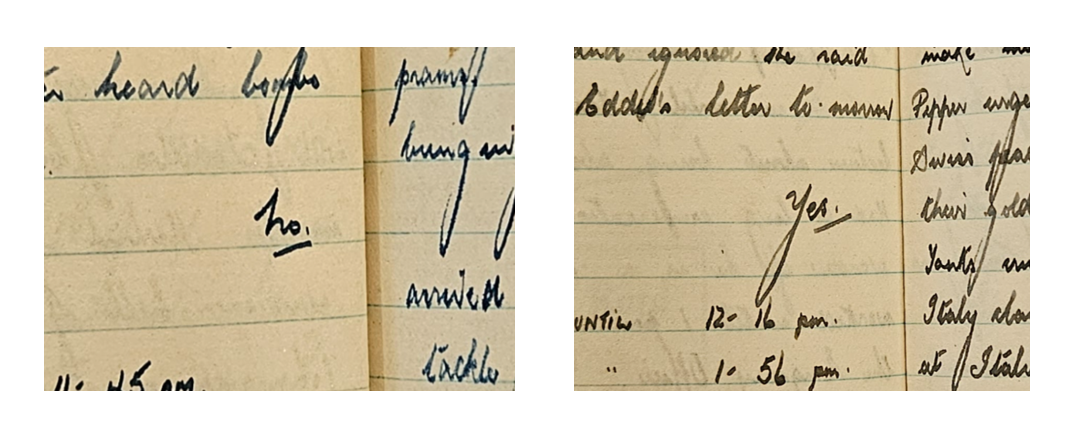 heard bombs
no.
11- 45 pm.
prang
bung
arrived
tackle
and ignored the raid
Eddie's letter to-morrow
Yes.
UNTIL 12- 16 pm.
" 1- 56 pm.
make
Pepper urge
Swiss
their gold
Yanks
Italy
at Itali